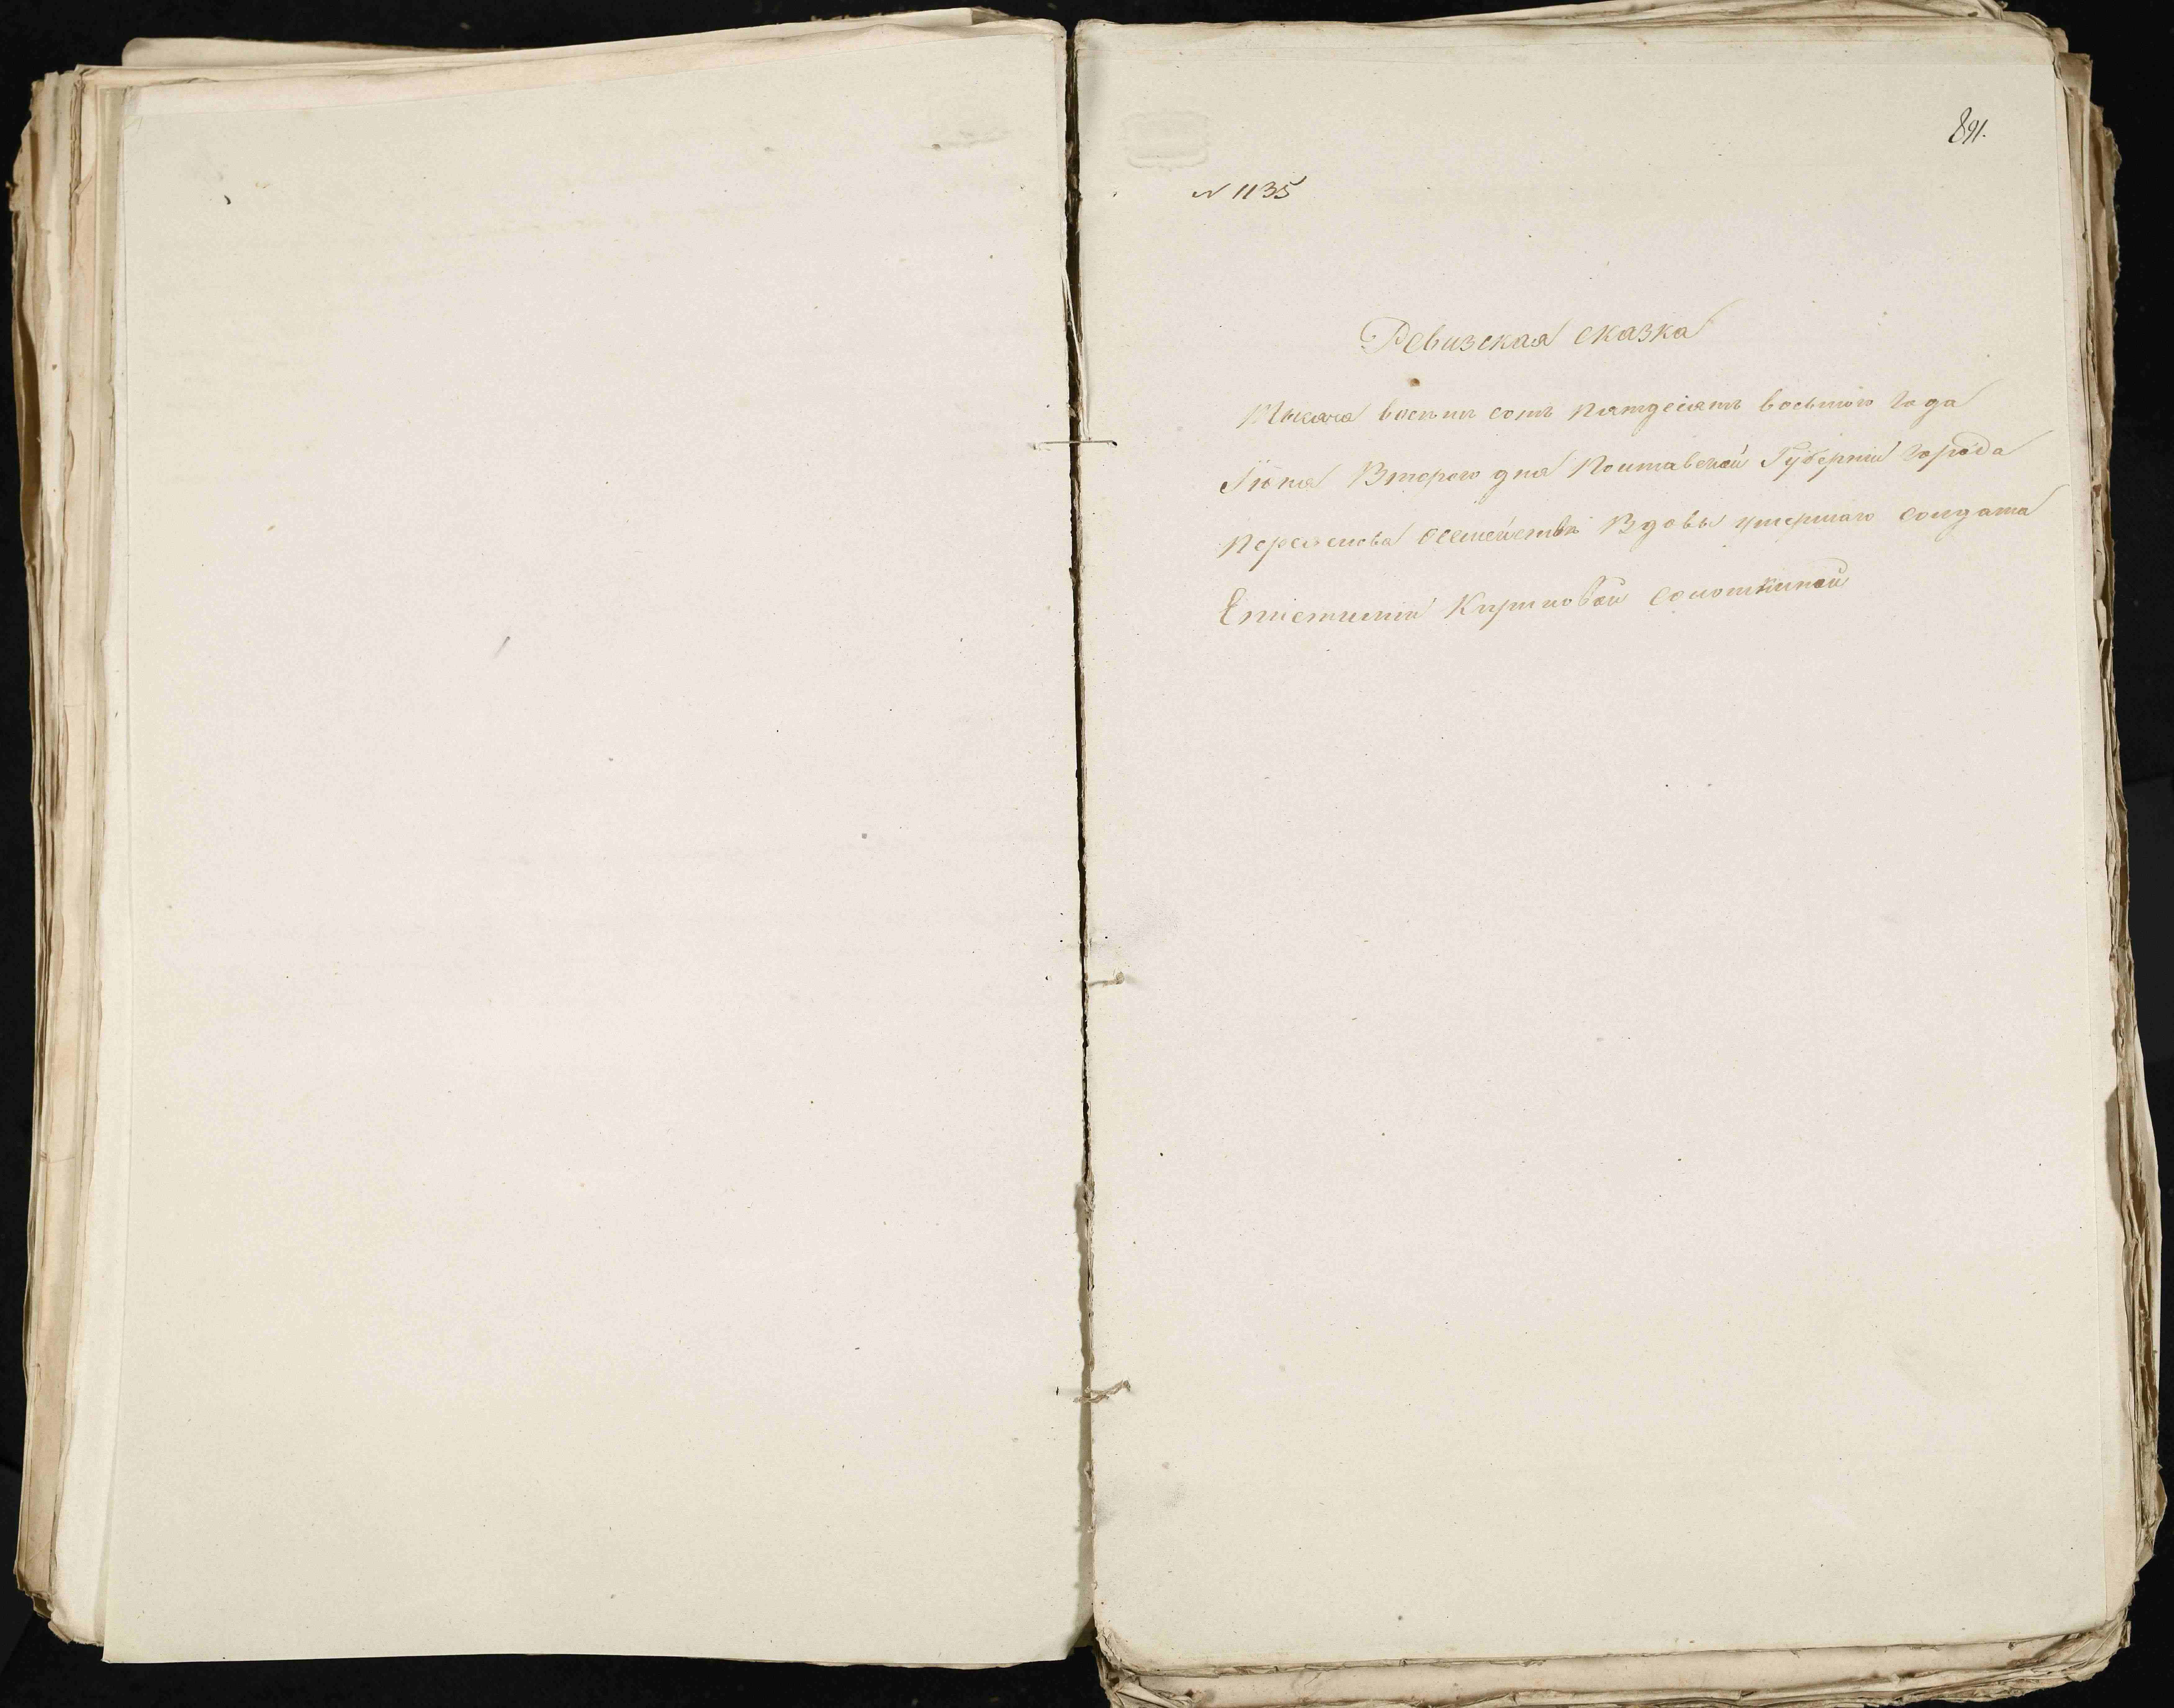 891.
N 1135
Ревизская сказка
Тысяча восемь сотъ пятдесятъ восьмого года
Іюня Второго дня Полтавской Губерніи города
Переяслова о семействѣ Вдовы умершаго солдата
Епистиміи Карповой